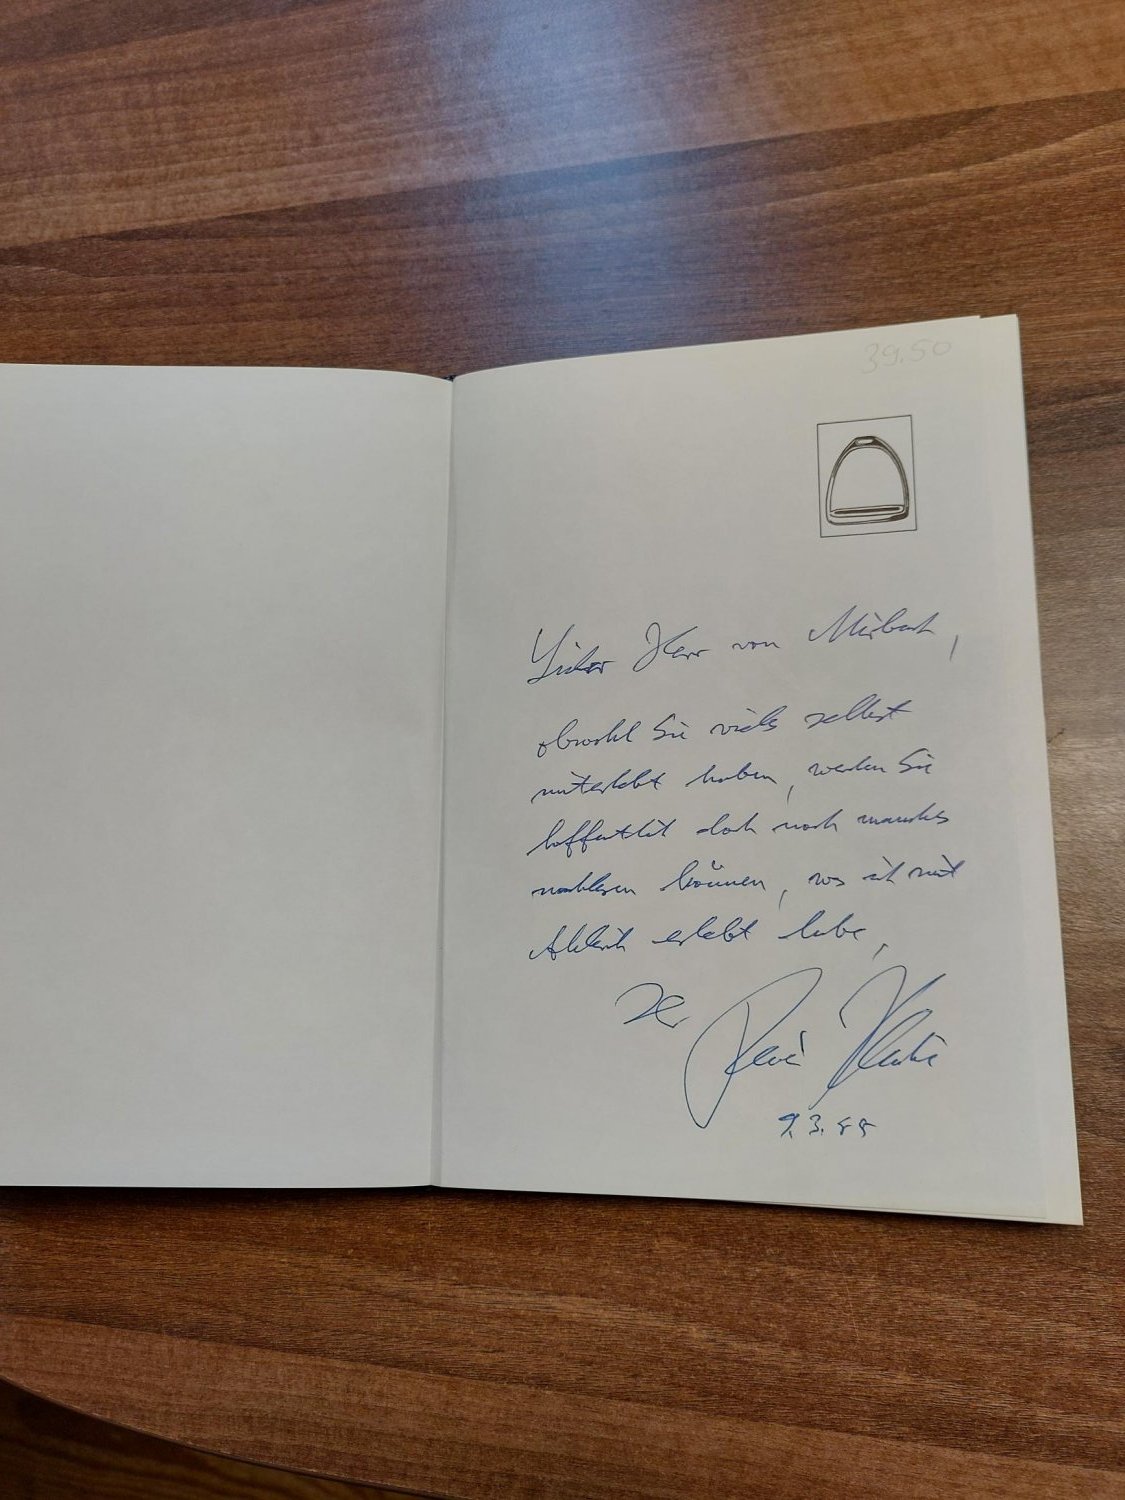 39.50
Lieber Herr von Mirbach,
obwohl Sie vieles selbst
miterlebt haben, werden Sie
hoffentlich doch noch manches
nachlesen können, was ich mit
Ahlerich erlebt habe,
Ihr
9.3.88